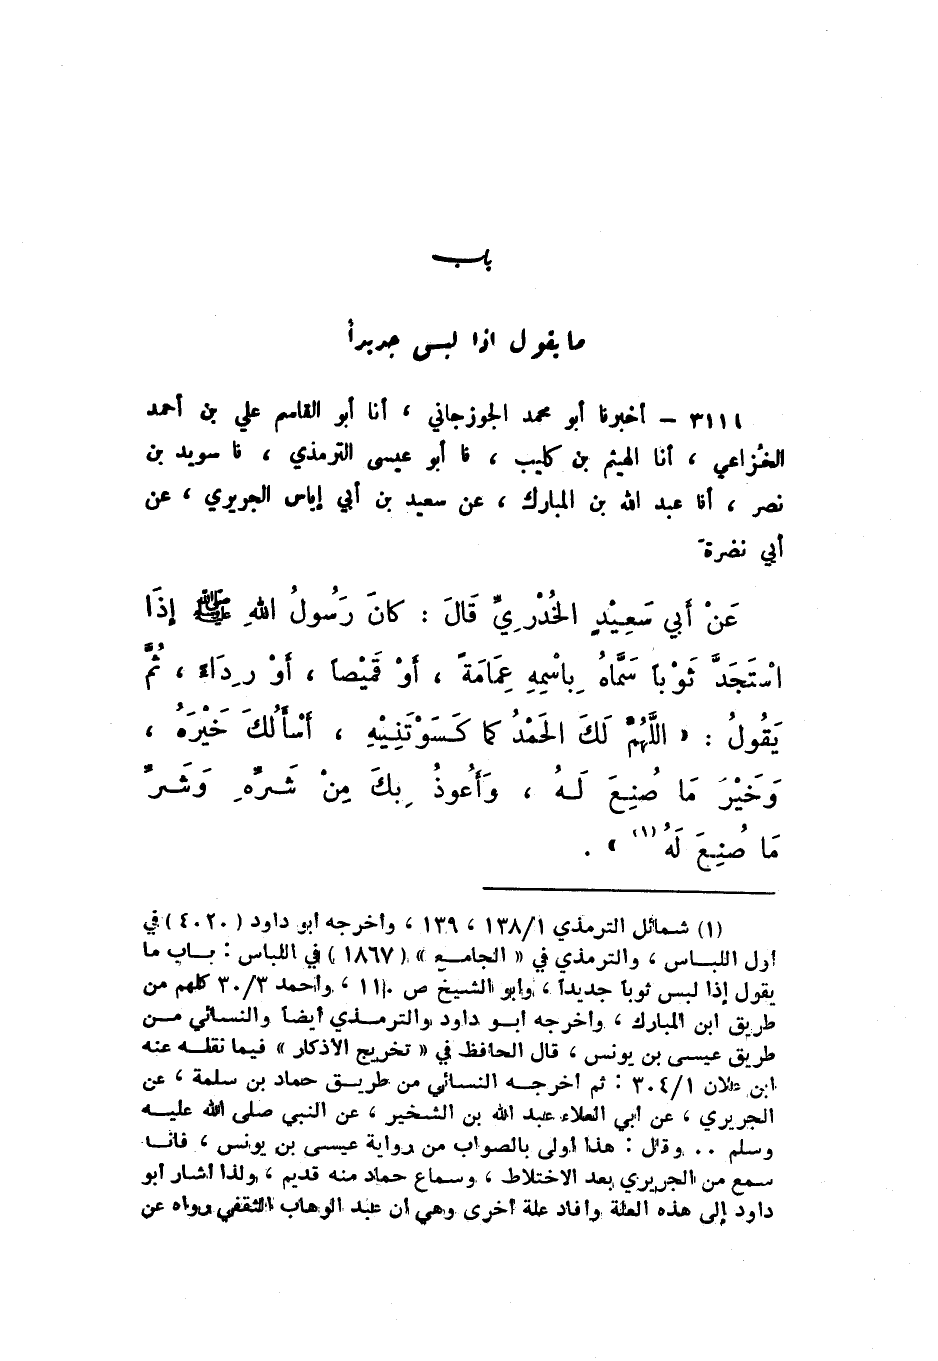 باب
ما يقول اذا لبس جديداً
٣١١١ – أخبرنا أبو محمد الجوزجاني ، أنا أبو القاسم علي بن أحمد
الخُزاعي ، أنا الهيثم بن كليب ، نا أبو عيسى الترمذي ، نا سويد بن
نصر ، أنا عبد الله بن المبارك ، عن سعيد بن أبي إياس الجريري ، عن
أبي نضرة
عَنْ أَبي سَعِيْدٍ الخُدْرِيِّ قَالَ : كانَ رَسُولُ اللهِ ﷺ إذَا
اسْتَجَدَّ ثَوْباً سَمَّاهُ بِاسْمِهِ عِمَامَةً ، أَوْ قَمِيْصاً ، أَوْ رِدَاءً ، ثُمَّ
يَقُولُ : « اللَّهُمَّ لَكَ الحَمْدُ كما كَسَوْتَنِيْهِ ، أَسْأَلُكَ خَيْرَهُ ،
وَخَيْرَ مَا صُنِعَ لَهُ ، وَأَعُوذُ بِكَ مِنْ شَرِّهِ وَشَرِّ
مَا صُنِعَ لَهُ (١) » .
(١) شمائل الترمذي ١٣٨/١ ، ١٣٩ ، وأخرجه أبو داود ( ٤٠٢٠ ) في
أول اللباس ، والترمذي في « الجامع » ( ١٨٦٧ ) في اللباس : باب ما
يقول إذا لبس ثوباً جديداً ، وأبو الشيخ ص ١١٠ ، وأحمد ٣٠/٣ كلهم من
طريق ابن المبارك ، وأخرجه أبو داود والترمذي أيضاً والنسائي من
طريق عيسى بن يونس ، قال الحافظ في « تخريج الاذكار » فيما نقله عنه
ابن علان ٣٠٤/١ : ثم أخرجه النسائي من طريق حماد بن سلمة ، عن
الجريري ، عن أبي العلاء عبد الله بن الشخير ، عن النبي صلى الله عليه
وسلم .. وقال : هذا أولى بالصواب من رواية عيسى بن يونس ، فانه
سمع من الجريري بعد الاختلاط ، وسماع حماد منه قديم ، ولذا أشار أبو
داود إلى هذه العلة وأفاد علة أخرى وهي أن عبد الوهاب الثقفي رواه عن